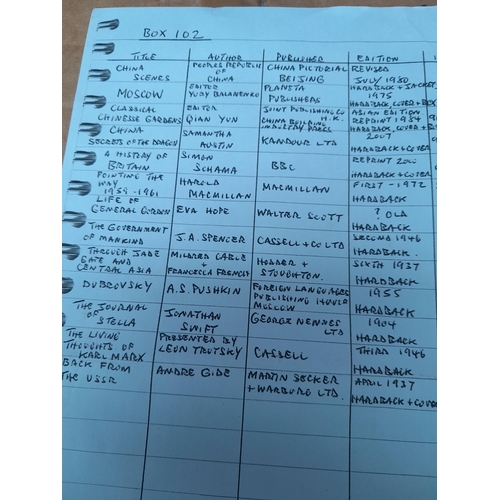 BOX 102
TITLE AUTHOR PUBLISHER EDITION
CHINA SCENES PEOPLES REPUBLIC OF CHINA CHINA PICTORIAL BEIJING REVISED JULY 1980 HARDBACK + JACKET
MOSCOW EDITOR YURY BALANENKO PLANETA PUBLISHERS 1975 HARDBACK, COVER + BOX
CLASSICAL CHINESSE GARDENS EDITOR QIAN YUN JOINT PUBLISHING CO H.K. CHINA BUILDING INDUSTRY PRESS ASIAN EDITION REPRINT 1984 HARDBACK, COVER +
CHINA SECRETS OF THE DRAGON SAMANTHA AUSTIN KANDOUR LTD 2007 HARDBACK + COVER
A HISTORY OF BRITAIN SIMON SCHAMA BBC REPRINT HARDBACK + COVER
POINTING THE WAY 1959-1961 HAROLD MACMILLAN MACMILLAN FIRST - 1972 HARDBACK
LIFE OF GENERAL GORDON EVA HOPE WALTER SCOTT ? OLD HARDBACK
THE GOVERNMENT OF MANKIND J.A. SPENCER CASSELL + CO LTD SECOND 1946 HARDBACK.
THROUGH JADE GATE AND CENTRAL ASIA MILDRED CABLE + FRANCESCA FRENCH HODDER + STOUGHTON. SIXTH 1937 HARDBACK
DUBROVSKY A.S. PUSHKIN FOREIGN LANGUAGES PUBLISHING HOUSE MOSCOW 1955 HARDBACK
THE JOURNAL OF STELLA JONATHAN SWIFT GEORGE NEWNES LTD 1904 HARDBACK
THE LIVING THOUGHTS OF KARL MARX PRESENTED BY LEON TROTSKY CASSELL THIRD 1946 HARDBACK
BACK FROM THE USSR ANDRE GIDE MARTIN SECKER + WARBURG LTD. APRIL 1937 HARDBACK + COVER